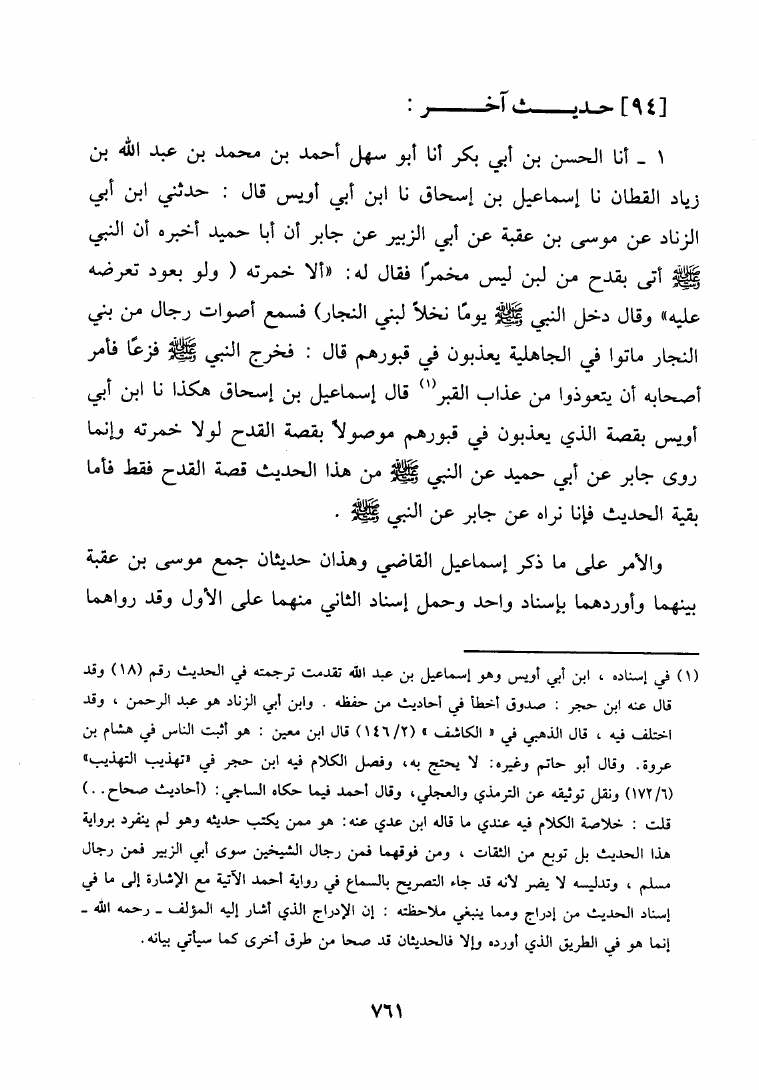 [٩٤] حديث آخر :
١ ـ أنا الحسن بن أبي بكر أنا أبو سهل أحمد بن محمد بن عبد الله بن
زياد القطان نا إسماعيل بن إسحاق نا ابن أبي أويس قال : حدثني ابن أبي
الزناد عن موسى بن عقبة عن أبي الزبير عن جابر أن أبا حميد أخبره أن النبي
ﷺ أتى بقدح من لبن ليس مخمرًا فقال له: «ألا خمرته ( ولو بعود تعرضه
عليه» وقال دخل النبي ﷺ يومًا نخلاً لبني النجار) فسمع أصوات رجال من بني
النجار ماتوا في الجاهلية يعذبون في قبورهم قال : فخرج النبي ﷺ فزعًا فأمر
أصحابه أن يتعوذوا من عذاب القبر(١) قال إسماعيل بن إسحاق هكذا نا ابن أبي
أويس بقصة الذي يعذبون في قبورهم موصولاً بقصة القدح لولا خمرته وإنما
روى جابر عن أبي حميد عن النبي ﷺ من هذا الحديث قصة القدح فقط فأما
بقية الحديث فإنا نراه عن جابر عن النبي ﷺ .
والأمر على ما ذكر إسماعيل القاضي وهذان حديثان جمع موسى بن عقبة
بينهما وأوردهما بإسناد واحد وحمل إسناد الثاني منهما على الأول وقد رواهما
(١) في إسناده ، ابن أبي أويس وهو إسماعيل بن عبد الله تقدمت ترجمته في الحديث رقم (١٨) وقد
قال عنه ابن حجر : صدوق أخطأ في أحاديث من حفظه . وابن أبي الزناد هو عبد الرحمن ، وقد
اختلف فيه ، قال الذهبي في « الكاشف » (١٤٦/٢) قال ابن معين : هو أثبت الناس في هشام بن
عروة. وقال أبو حاتم وغيره: لا يحتج به، وفصل الكلام فيه ابن حجر في «تهذيب التهذيب»
(١٧٢/٦) ونقل توثيقه عن الترمذي والعجلي، وقال أحمد فيما حكاه الساجي: (أحاديث صحاح..)
قلت : خلاصة الكلام فيه عندي ما قاله ابن عدي عنه: هو ممن يكتب حديثه وهو لم ينفرد برواية
هذا الحديث بل توبع من الثقات ، ومن فوقهما فمن رجال الشيخين سوى أبي الزبير فمن رجال
مسلم ، وتدليسه لا يضر لأنه قد جاء التصريح بالسماع في رواية أحمد الآتية مع الإشارة إلى ما في
إسناد الحديث من إدراج ومما ينبغي ملاحظته : إن الإدراج الذي أشار إليه المؤلف ـ رحمه الله ـ
إنما هو في الطريق الذي أورده وإلا فالحديثان قد صحا من طرق أخرى كما سيأتي بيانه.
٧٦١